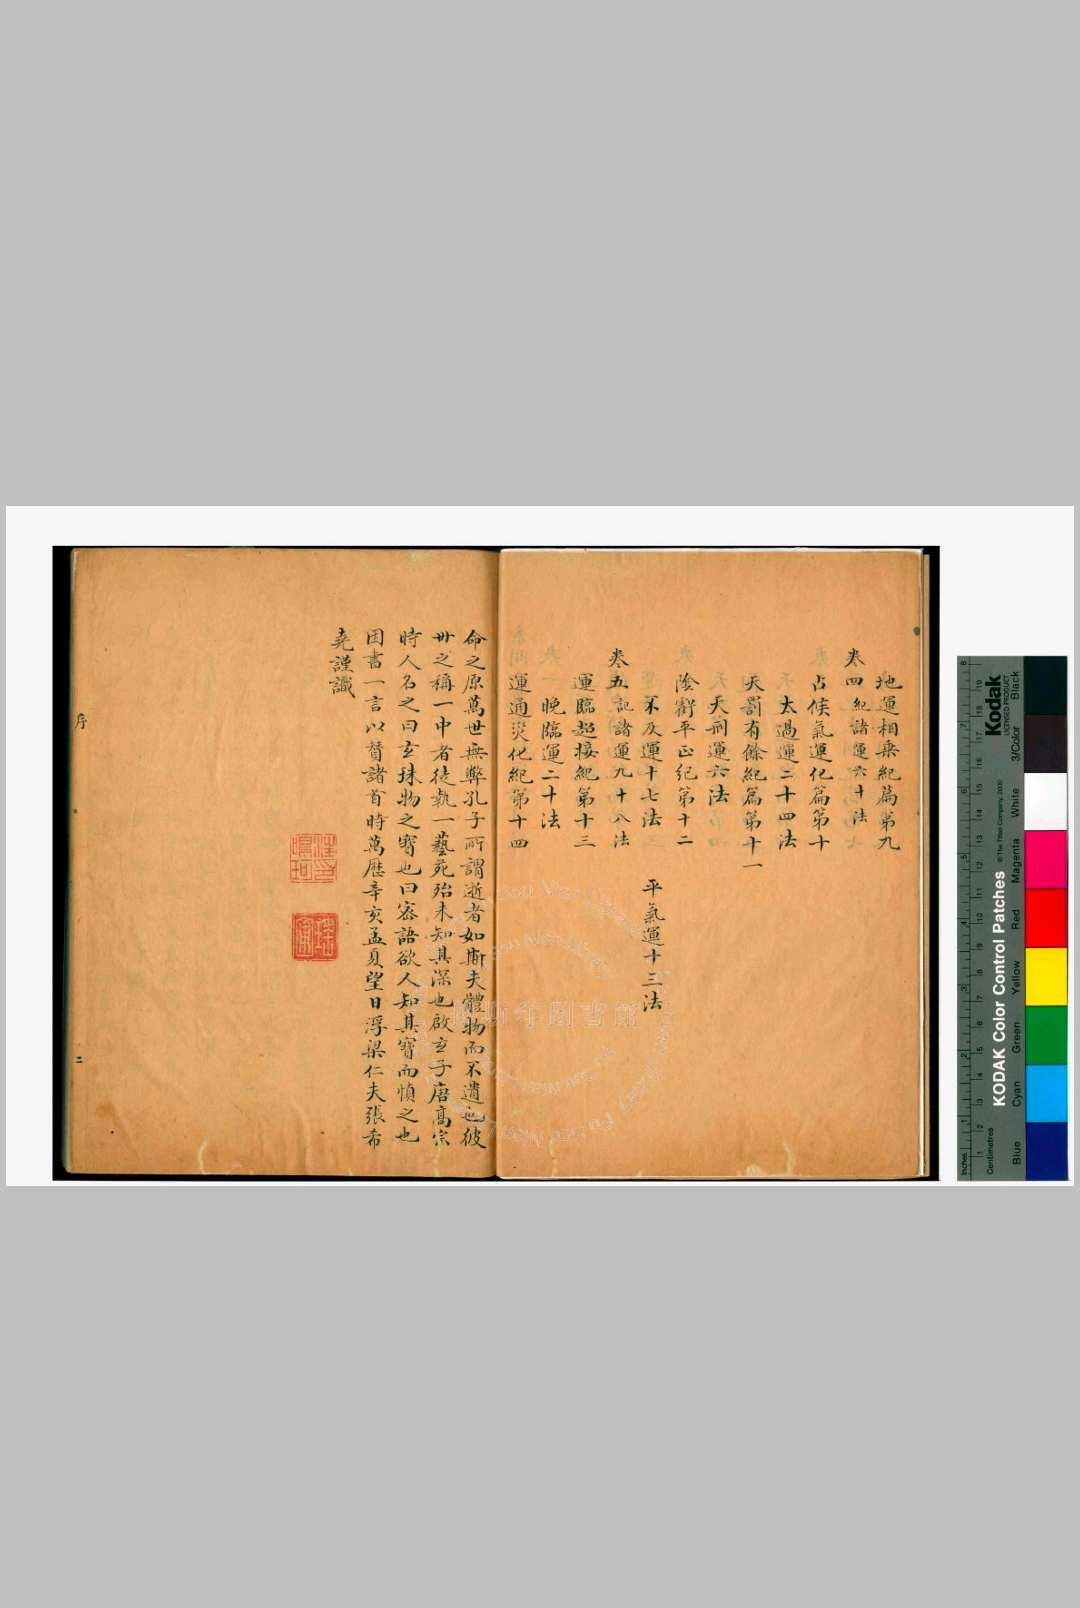 地運相乗紀篇第九
卷四紀諸運六十法
占候氣運化篇第十
太過運二十四法
天罰有餘紀篇第十一
天刑運六法
陰欝平正紀第十二
不及運十七法 平氣運十三法
卷五記諸運九十八法
運臨超接紀第十三
晚臨運二十法
運通災化紀第十四
命之原萬世無弊孔子所謂逝者如斯夫體物而不遺也彼
卅之稱一中者徒執一藝苑殆未知其深也啟玄子唐高宗
時人名之曰玄珠物之寳也曰密語欲人知其寳而慎之也
因書一言以賛諸首時萬歴辛亥孟夏望日浮梁仁夫張希
堯謹識
序
二
Kodak
LICENSED PRODUCT
KODAK Color Control Patches
© The Tiffen Company, 2000
Inches
Centimetres
Blue
Cyan
Green
Yellow
Red
Magenta
White
3/Color
Black